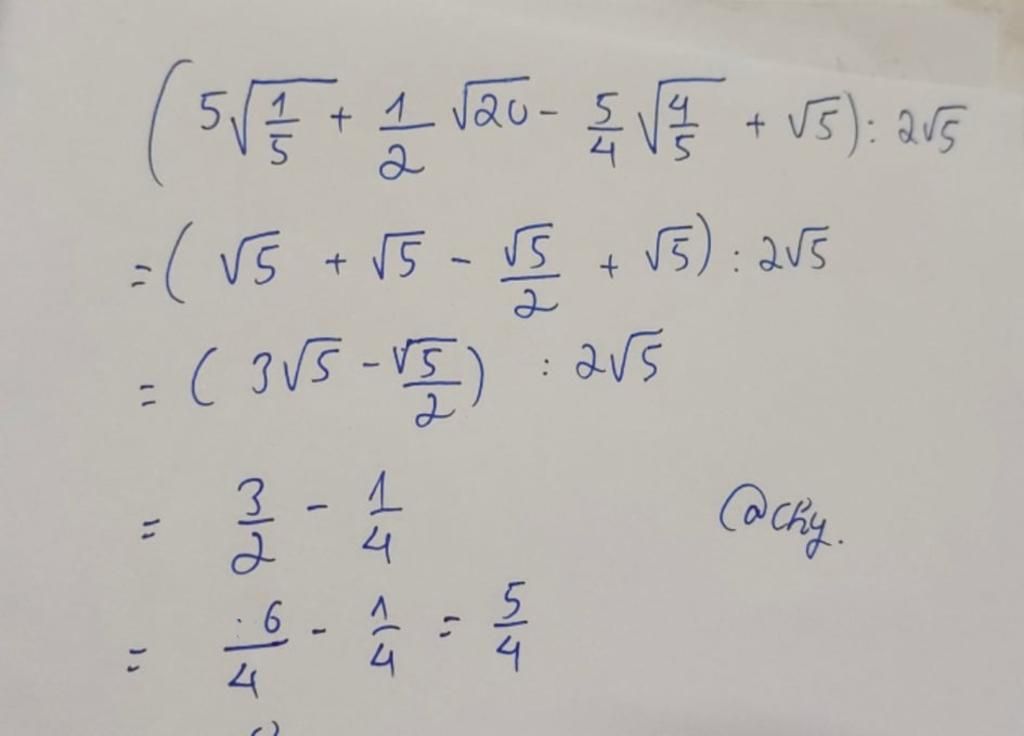 (5√(1/5) + 1/2 √20 - 5/4 √(4/5) + √5) : 2√5
= (√5 + √5 - √5/2 + √5) : 2√5
= (3√5 - √5/2) : 2√5
= 3/2 - 1/4
@chy.
= 6/4 - 1/4 = 5/4